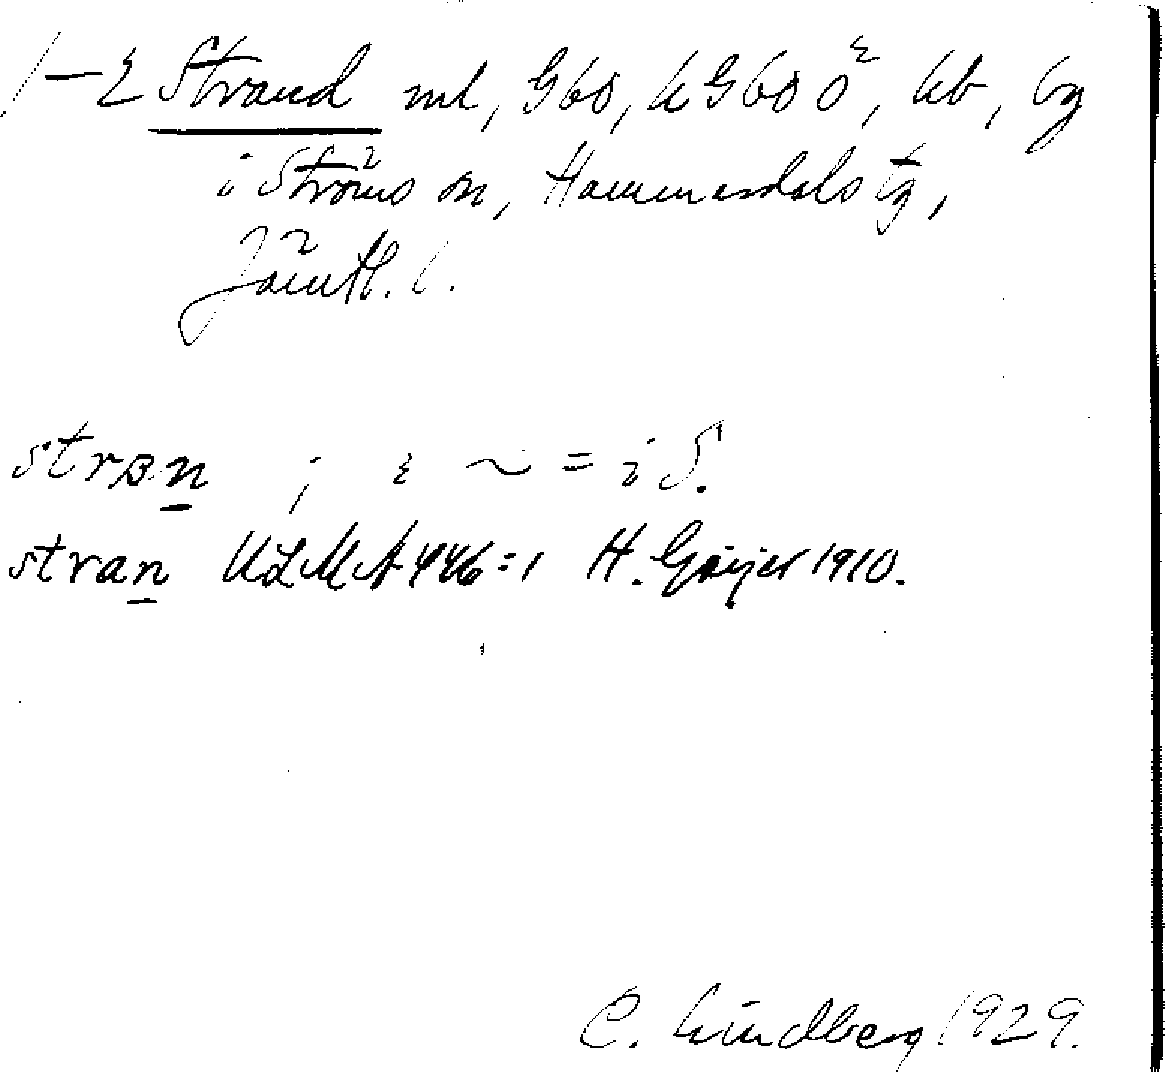 /-2 Strand ml, G60, kG60 Ö, kb, by
i Ströms sn, Hammerdals tg,
Jämtl. l.
strɑn ; i ~ = i S.
stran ULMA 446:1 H. Geijer 1910.
C. Lindberg 1929.